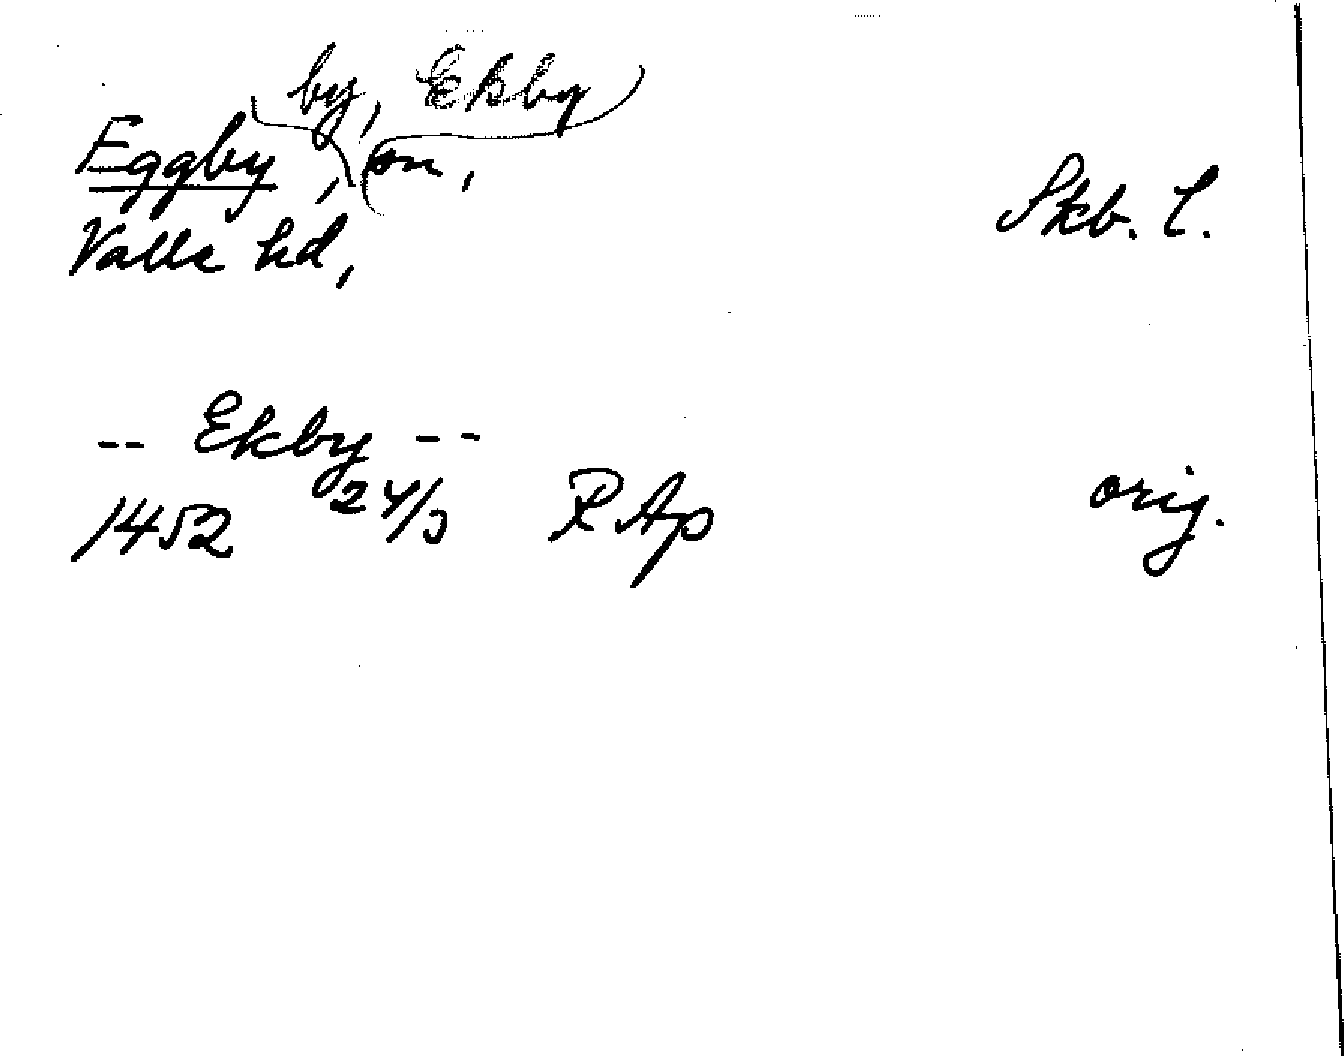 by, Ekby
Eggby, sn,
Valle hd,
Skb. l.
-- Ekby --
1452 24/3 RAp orig.